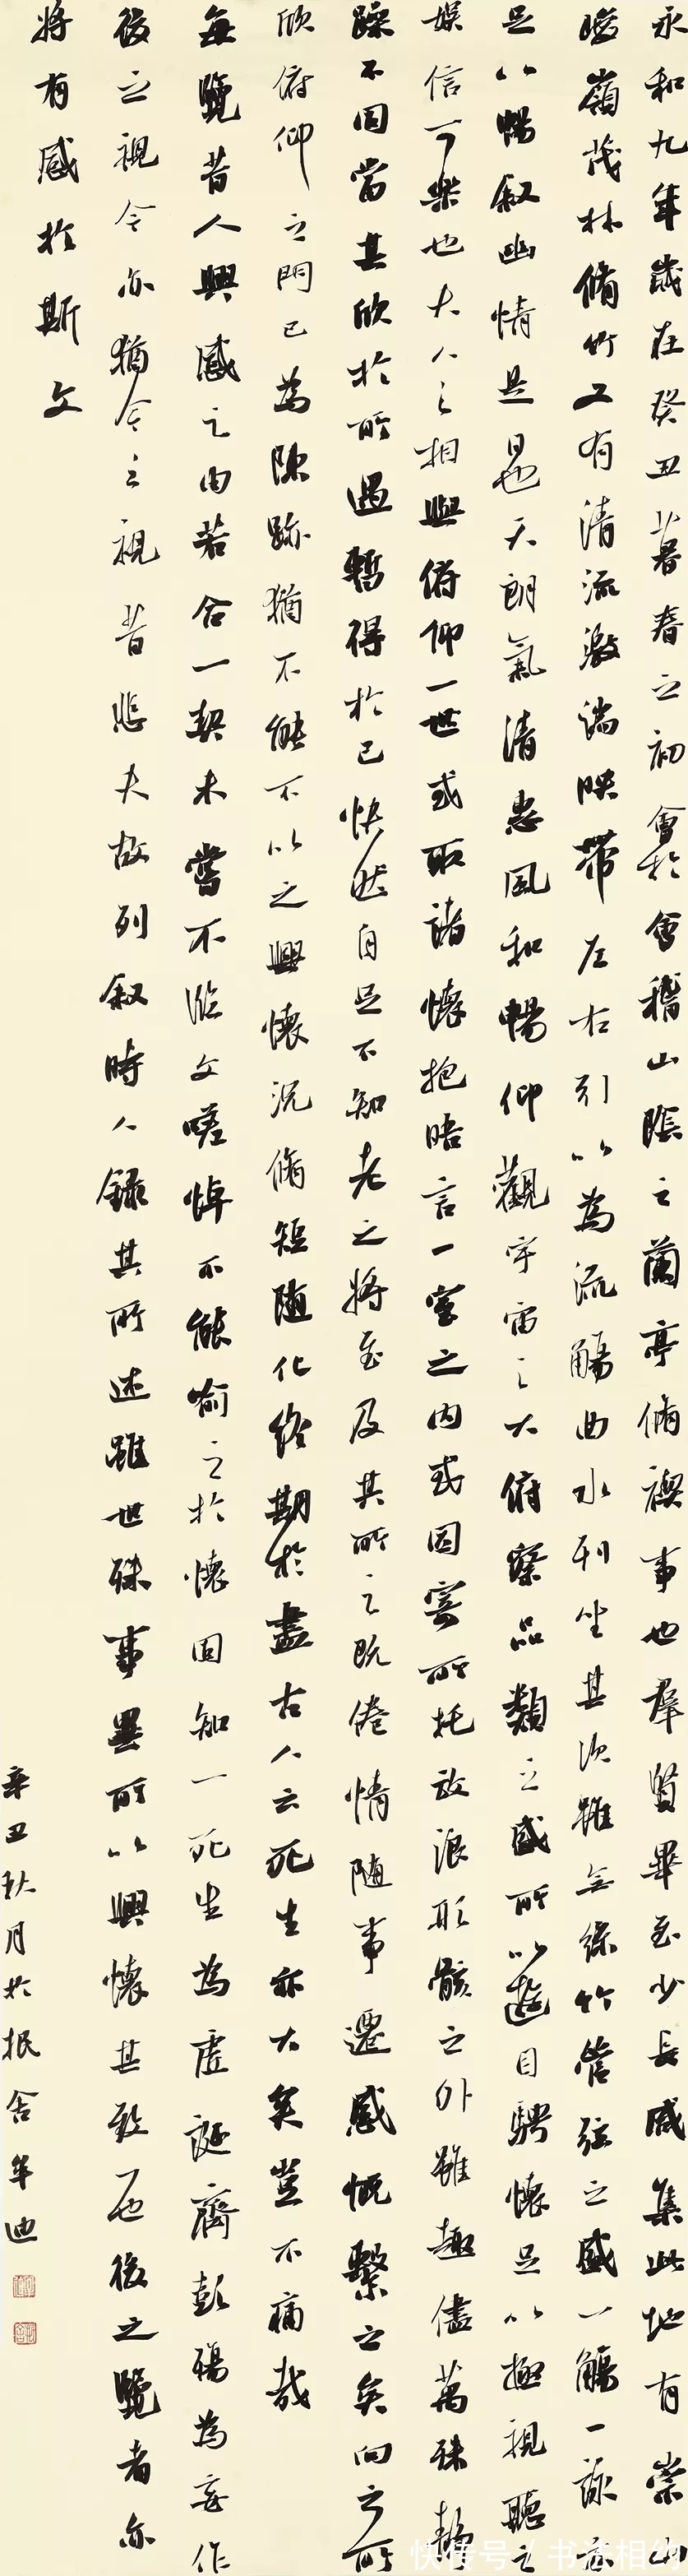 永和九年歲在癸丑暮春之初會於會稽山陰之蘭亭脩禊事也群賢畢至少長咸集此地有崇山
峻嶺茂林脩竹又有清流激湍映帶左右引以為流觴曲水列坐其次雖無絲竹管弦之盛一觴一詠亦
足以暢敘幽情是日也天朗氣清惠風和暢仰觀宇宙之大俯察品類之盛所以遊目騁懷足以極視聽之
娛信可樂也夫人之相與俯仰一世或取諸懷抱晤言一室之內或因寄所托放浪形骸之外雖趣儘萬殊靜
躁不同當其欣於所遇暫得於己快然自足不知老之將至及其所之既倦情隨事遷感慨繫之矣向之所
欣俯仰之間已為陳跡猶不能不以之興懷況脩短隨化終期於盡古人云死生亦大矣豈不痛哉
每覽昔人興感之由若合一契未嘗不臨文嗟悼不能喻之於懷固知一死生為虛誕齊彭殤為妄作
後之視今亦猶今之視昔悲夫故列敘時人錄其所述雖世殊事異所以興懷其致一也後之覽者亦
將有感於斯文
辛丑秋月於抿舍年迪
快传号/书法相约